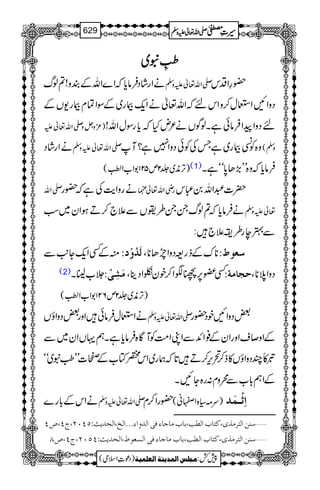 سیرتِ مصطفیٰ صلی اللہ تعالیٰ علیہ وسلم 629
طبِ نبوی
حضورِ اقدس صلی اللہ تعالیٰ علیہ وسلم نے ارشاد فرمایا کہ اے اللہ کے بندو! تم لوگ
دوائیں استعمال کرو اس لئے کہ اللہ تعالیٰ نے ایک بیماری کے سوا تمام بیماریوں کے
لئے دوا پیدا فرمائی ہے۔ لوگوں نے عرض کیا کہ یا رسول اللہ! (عزوجل و صلی اللہ تعالیٰ علیہ
وسلم) وہ کونسی بیماری ہے جس کی کوئی دوا نہیں ہے؟ آپ صلی اللہ تعالیٰ علیہ وسلم نے ارشاد
فرمایا کہ وہ ’’بڑھاپا‘‘ ہے۔(1) (ترمذی جلد۲ ص۲۵ ابواب الطب)
حضرت عبداللہ بن عباس رضی اللہ تعالیٰ عنہما نے روایت کی ہے کہ حضور صلی اللہ
تعالیٰ علیہ وسلم نے فرمایا کہ تم لوگ جن جن طریقوں سے علاج کرتے ہو ان میں سب
سے بہتر چار طریقۂ علاج ہیں:
سعوط: ناک کے ذریعہ دوا چڑھانا، لَدُوْد: منہ کے کسی ایک جانب سے
دوا پلانا، حجامۃ: کسی عضو پر پچھنا لگوا کر خون نکلوا دینا، مَشِیّ: جلاب لینا۔(2)
(ترمذی جلد۲ ص۲۶ ابواب الطب)
بعض دوائیں خود حضور صلی اللہ تعالیٰ علیہ وسلم نے استعمال فرمائی ہیں اور بعض دواؤں
کے اوصاف اور ان کے فوائد سے اپنی امت کو آگاہ فرمایا ہے۔ ہم یہاں ان میں سے
تبرکاً چند دواؤں کا ذکر تحریر کرتے ہیں تاکہ ہماری اس مختصر کتاب کے صفحات ’’طبِ نبوی‘‘
کے اہم باب سے محروم نہ رہ جائیں۔
اِثْمِدْ (سرمہ سیاہ اصفہانی) حضورِ اکرم صلی اللہ تعالیٰ علیہ وسلم نے اس کے بارے
سنن الترمذی، کتاب الطب، باب ماجاء فی الدواء...الخ، الحدیث: ۲۰۴۵، ج۴، ص۴
سنن الترمذی، کتاب الطب، باب ماجاء فی السعوط، الحدیث: ۲۰۵۴، ج۴، ص۸
پیش کش: مجلس المدینۃ العلمیۃ (دعوتِ اسلامی)